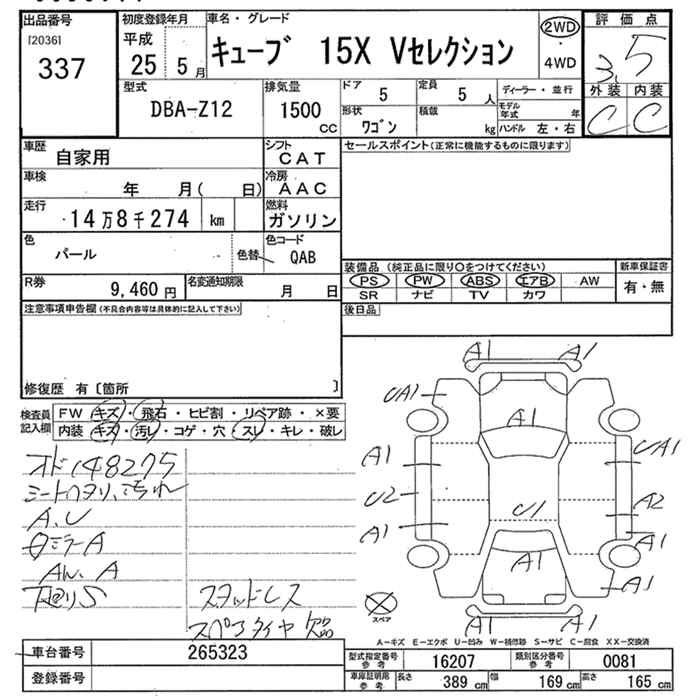 出品番号 初度登録年月 車名・グレード 2WD 評価点
[2036] 平成 キューブ 15X Vセレクション ・ 3.5
337 25年 5月 4WD
型式 排気量 ドア 5 定員 5人 ディーラー・並行 外装 内装
DBA-Z12 1500cc 形状 ワゴン 積載 kg モデル年式 年 C C
ハンドル 左・右
車歴 自家用 シフト CAT セールスポイント(正常に機能するものに限ります)
車検 年 月( 日) 冷房 AAC
走行 14万8千274 km 燃料 ガソリン
色 パール 色替 色コード QAB
装備品(純正品に限り〇をつけてください) 新車保証書
PS PW ABS エアB AW 有・無
SR ナビ TV カワ
R券 9,460円 名変通知期限 月 日
後日品
注意事項申告欄(不具合内容等は具体的に記入して下さい)
修復歴 有〔箇所 〕
検査員記入欄 FW キズ・飛石・ヒビ割・リペア跡・×要
内装 キズ・汚レ・コゲ・穴・スレ・キレ・破レ
オド148275
シートヘタリ、汚れ
A.U
ミラーA
AW.A
下廻りS
スタッドレス
スペアタイヤ欠品
A1 A1
UA1
A1
A1 UA1
U2 U1 A2
A1 A1
A1 A1
A1 A1
スペア
A-キズ E-エクボ U-凹み W-補修跡 S-サビ C-腐食 XX-交換済
車台番号 265323
登録番号
型式指定番号参考 16207 類別区分番号参考 0081
車庫証明用参考 長さ 389cm 幅 169cm 高さ 165cm